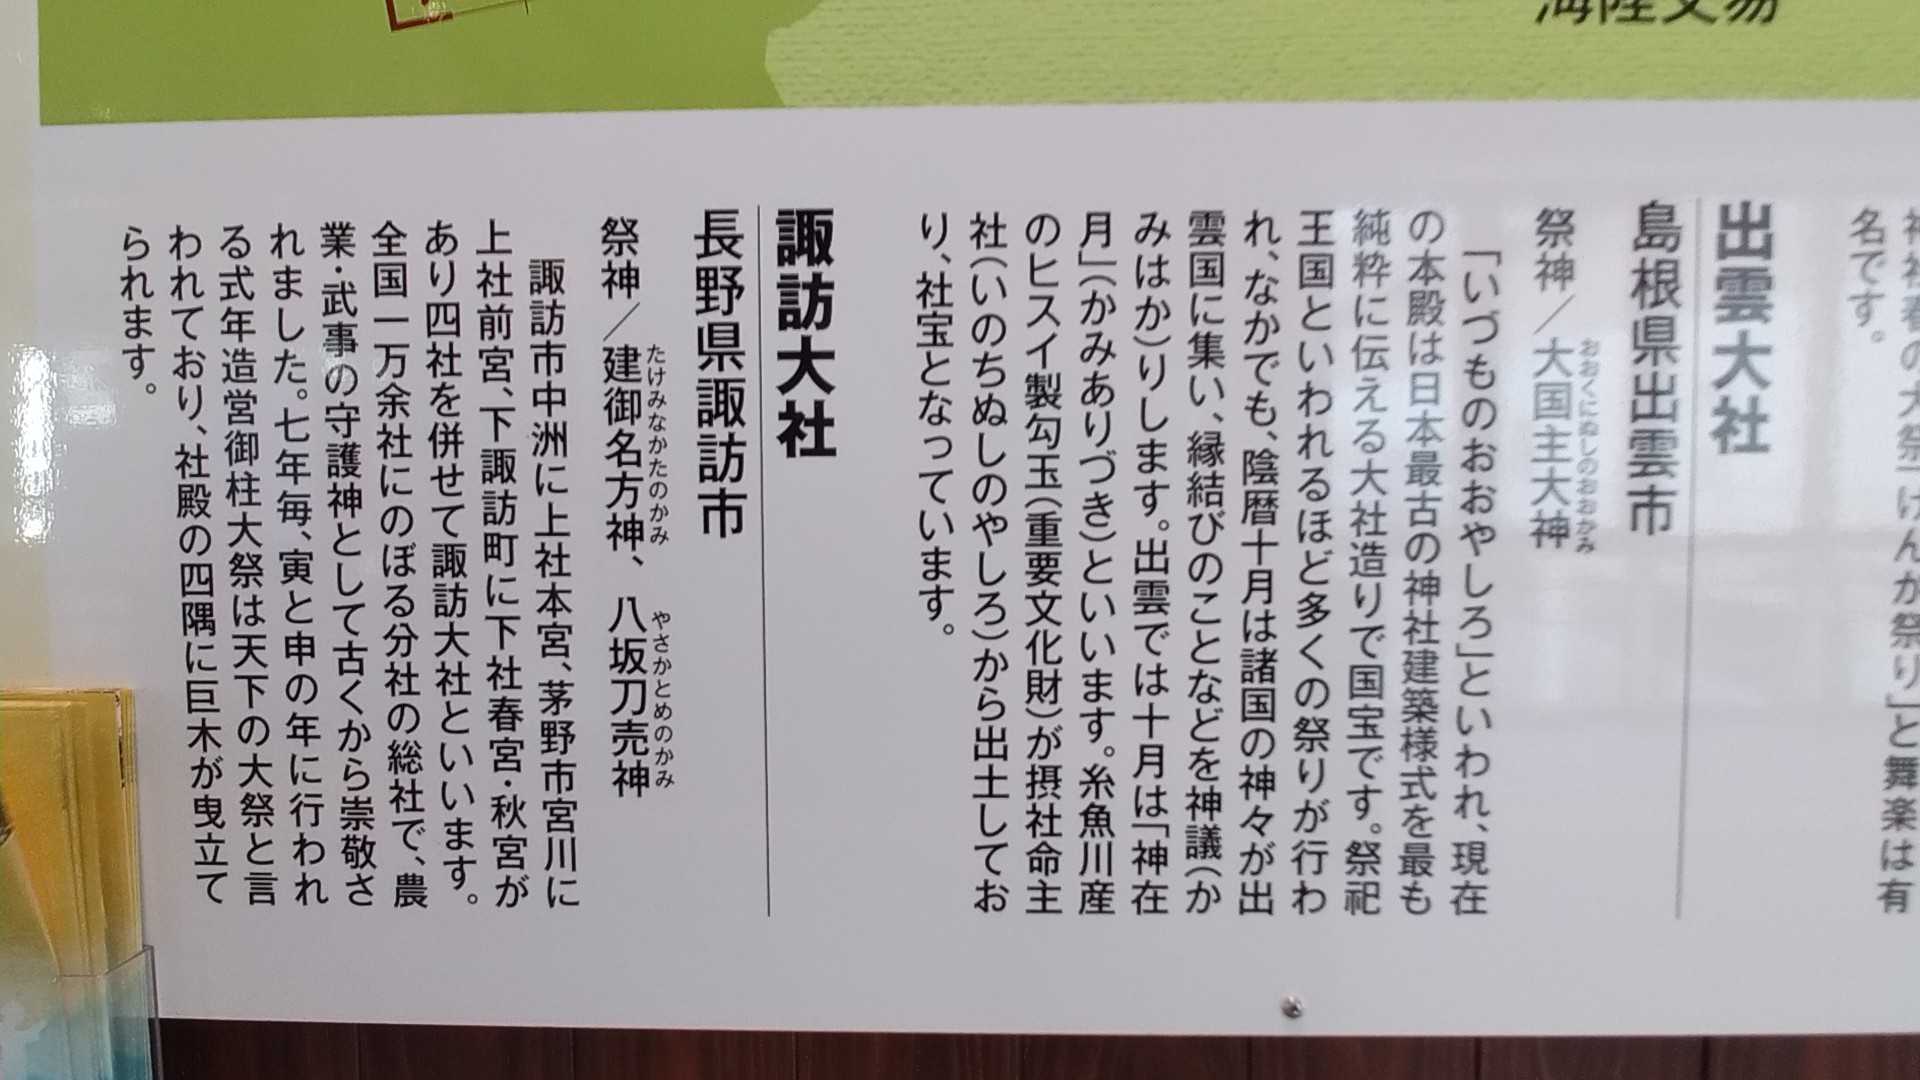 海陸交易
神社春の大祭「けんか祭り」と舞楽は有
名です。
出雲大社
島根県出雲市
祭神／大国主大神
おおくにぬしのおおかみ
「いづものおおやしろ」といわれ、現在
の本殿は日本最古の神社建築様式を最も
純粋に伝える大社造りで国宝です。祭祀
王国といわれるほど多くの祭りが行わ
れ、なかでも、陰暦十月は諸国の神々が出
雲国に集い、縁結びのことなどを神議(か
みはか)りします。出雲では十月は「神在
月」(かみありづき)といいます。糸魚川産
のヒスイ製勾玉(重要文化財)が摂社命主
社(いのちぬしのやしろ)から出土してお
り、社宝となっています。
諏訪大社
長野県諏訪市
祭神／建御名方神、八坂刀売神
たけみなかたのかみ
やさかとめのかみ
諏訪市中洲に上社本宮、茅野市宮川に
上社前宮、下諏訪町に下社春宮・秋宮が
あり四社を併せて諏訪大社といいます。
全国一万余社にのぼる分社の総社で、農
業・武事の守護神として古くから崇敬さ
れました。七年毎、寅と申の年に行われ
る式年造営御柱大祭は天下の大祭と言
われており、社殿の四隅に巨木が曳立て
られます。